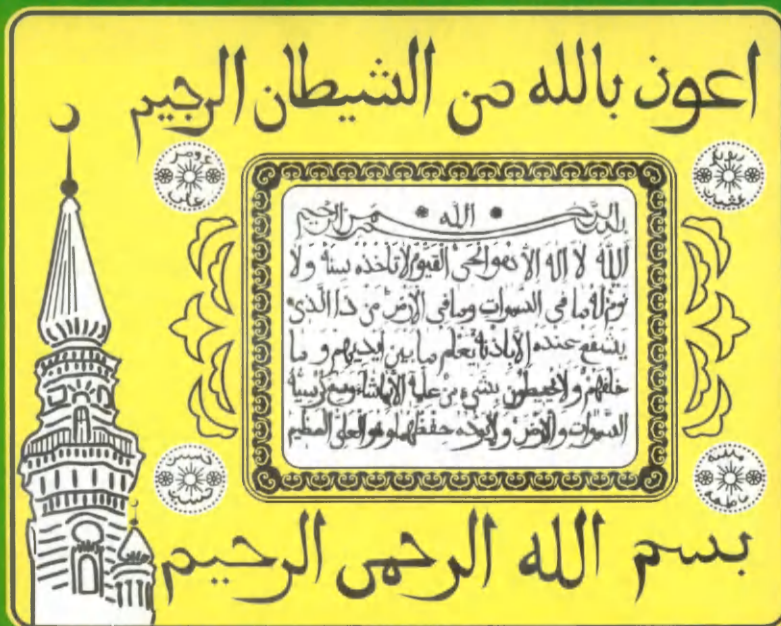 اعوذ بالله من الشيطان الرجيم
بسم الله الرحمن الرحيم
الله لا اله الا هو الحي القيوم لا تاخذه سنة ولا
نوم له ما في السموات وما في الارض من ذا الذي
يشفع عنده الا باذنه يعلم ما بين ايديهم و ما
خلفهم ولا يحيطون بشيء من علمه الا بما شاء وسع كرسيه
السموات والارض ولا يؤده حفظهما وهو العلي العظيم
بسم الله الرحمن الرحيم